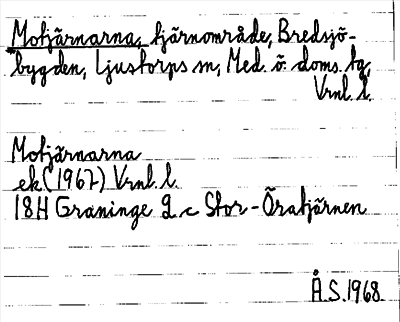 Motjärnarna, tjärnområde, Bredsjö-
bygden, Ljustorps sn, Med. ö. doms. tg,
Vrnl. l.
Motjärnarna
ek (1967) Vrnl. l.
18H Graninge 9 c Stor-Öratjärnen
Å.S. 1968.